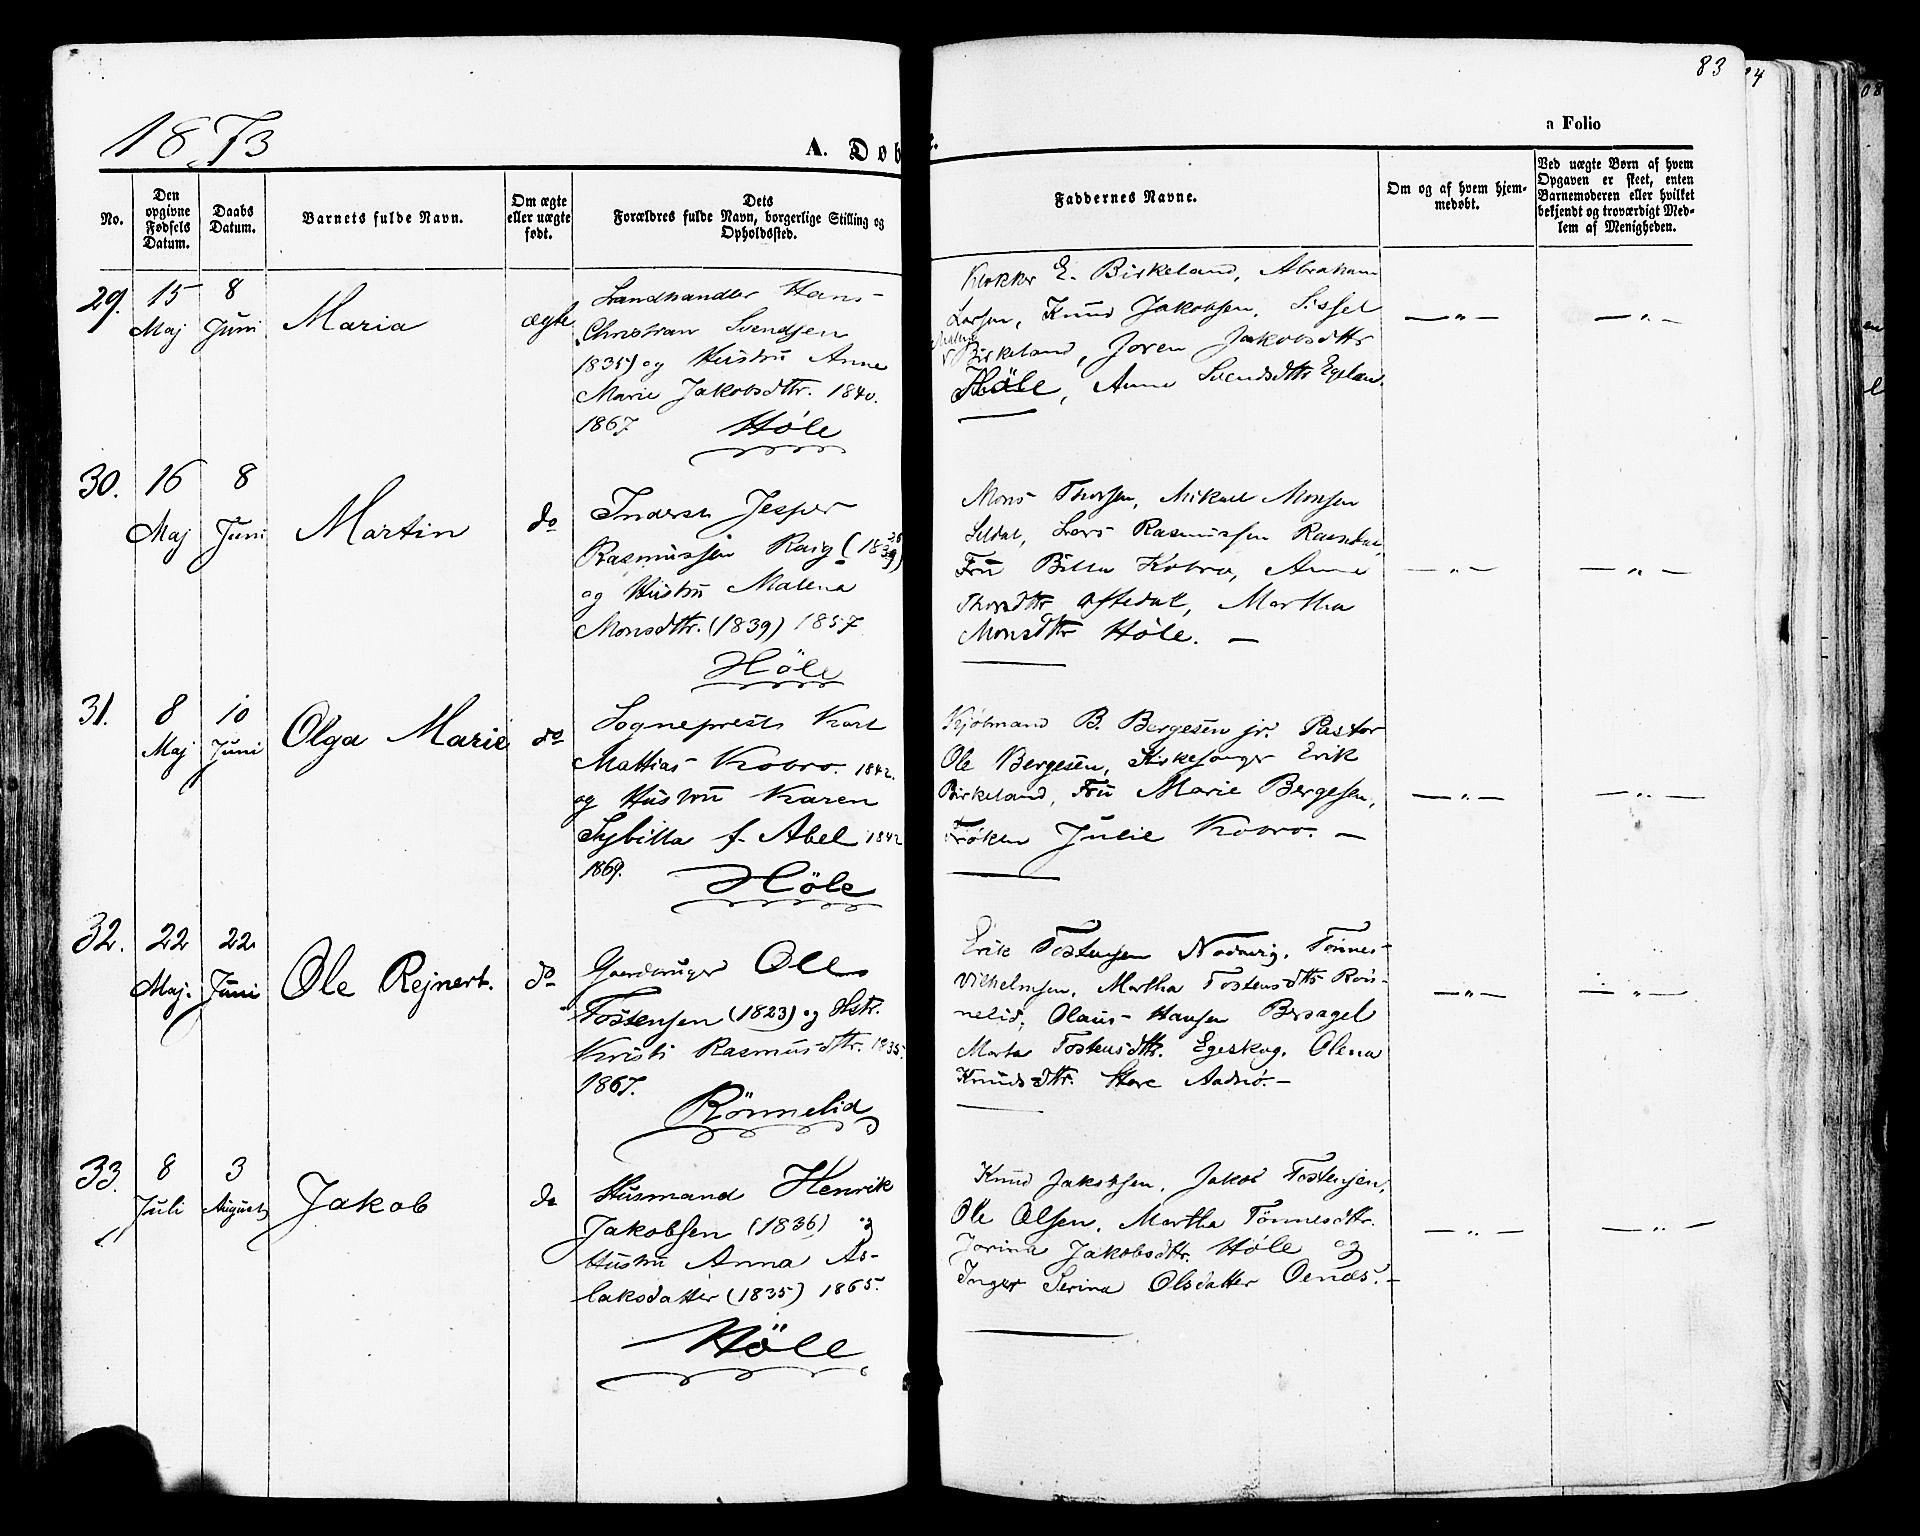 83
1873
A. Døb
a Folio
No.
Den opgivne Fødsels Datum.
Daabs Datum.
Barnets fulde Navn.
Om ægte eller uægte født.
Dets Forældres fulde Navn, borgerlige Stilling og Opholdssted.
Faddernes Navne.
Om og af hvem hjem-
medøbt.
Ved uægte Børn af hvem
Opgaven er skeet, enten
Barnemoderen eller hvilket
bekjendt og troværdigt Med-
lem af Menigheden.
29.
15 Maj
8 Juni
Maria
ægte
Landhandler Hans
Christian Svendsen
1835) og Hustru Anne
Marie Jakobsdttr. 1840.
1867 Høle
Klokker E. Birkeland, Abraham
Larsen, Knud Jakobsen, Sissel
Birkeland, Joren Jakobsdttr
Høle, Anne Svendsdttr
— " —
— " —
30.
16 Maj
8 Juni
Martin
do
Jesper
Rasmussen
og Hustru Malena
Monsdttr. (1839) 1857
Høle
Mons Thorsen, Mikael Monsen
Seldal, Lars Rasmussen
Fru Kobro, Anne
Thorsdttr Aftedal, Martha
Monsdttr Høle. —
— " —
— " —
31.
8 Maj
10 Juni
Olga Marie
do
Sogneprest Karl
Mattias Kobro. 1842.
og Hustru Karen
Sybilla f. Abel 1842
1869. Høle
Kjøbmand B. Bergesen jr. Pastor
Ole Bergesen, Kirkesanger Erik
Birkeland, Fru Marie Bergesen,
Frøken Julie Kobro. —
— " —
— " —
32.
22 Maj.
22 Juni
Ole Rejnert.
do
Gaardbruger Ole
Tostensen (1823) og Hstr.
Kristi Rasmusdttr. 1835.
1867.
Rönnelid
Erik Tostensen Nodvig, Tønnes
Vilhelmsen, Martha Tostensdttr Røn-
nelid, Olaus Hansen Bersagel
Marta Tostensdttr. Egeskog. Olena
Knudsdttr. Store Aadnø. —
— " —
— " —
33.
8 Juli
3 August
Jakob
do
Husmand Henrik
Jakobsen (1836) og
Hustru Anna As-
laksdatter (1835) 1865.
Höle
Knud Jakobsen, Jakob Tostensen,
Ole Olsen, Martha Tönnesdttr.
Jorina Jakobsdttr. Høle og
Inger Serina Olsdatter —
— " —
— " —